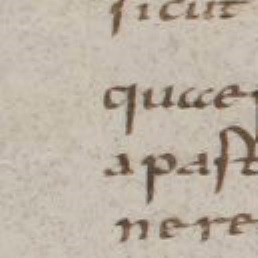 sicut
quae
apast
nere